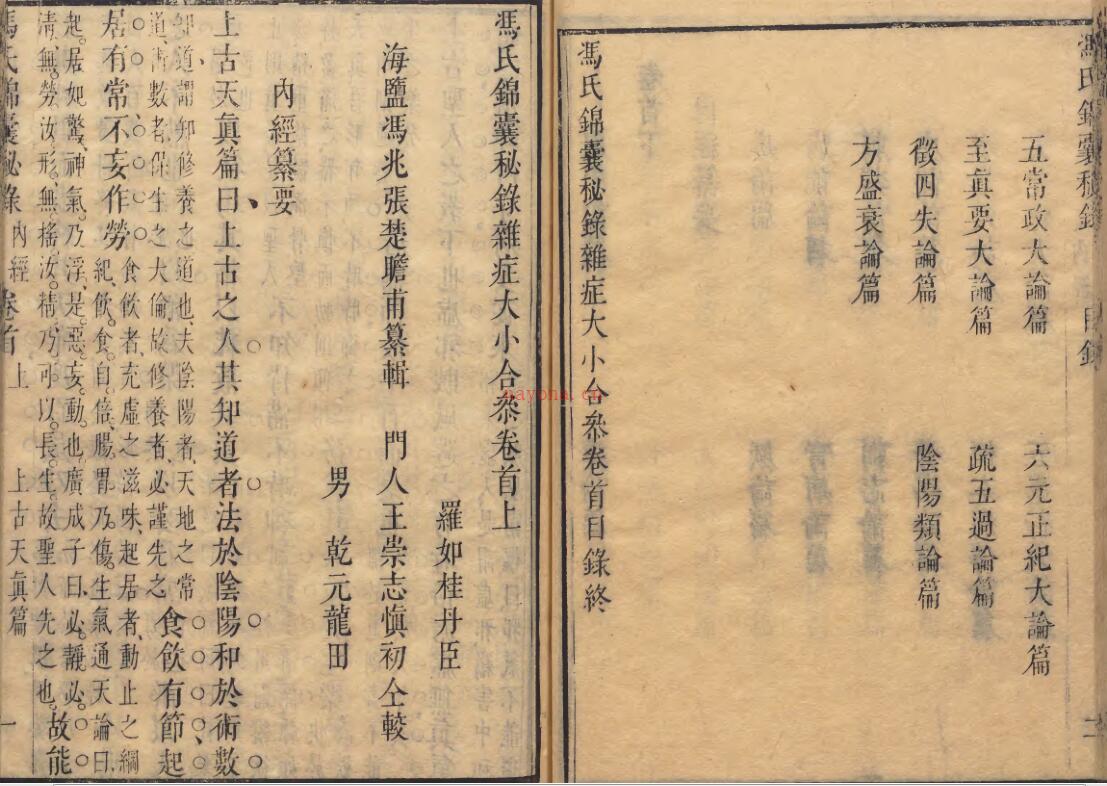 馮氏錦囊秘錄 目錄
五常政大論篇 六元正紀大論篇
至眞要大論篇 疏五過論篇
徵四失論篇 陰陽類論篇
方盛衰論篇
馮氏錦囊秘錄雜症大小合叅卷首目錄終
二
nayona.cn
馮氏錦囊秘錄雜症大小合叅卷首上
羅如桂丹臣
海鹽馮兆張楚瞻甫纂輯 門人王崇志愼初仝較
男 乾元龍田
內經纂要
上古天眞篇曰上古之人其知道者法於陰陽和於術數
知道謂知修養之道也夫陰陽者天地之常
道術數者保生之大倫故修養者必謹先之
食飲有節起
居有常不妄作勞
食飲者充虛之滋味起居者動止之綱
紀飲食自倍腸胃乃傷生氣通天論曰
起居如驚神氣乃浮是惡妄動也廣成子曰必靜必
清無勞汝形無搖汝精乃可以長生故聖人先之也
故能
馮氏錦囊秘錄 內經 卷首上 上古天眞篇 一